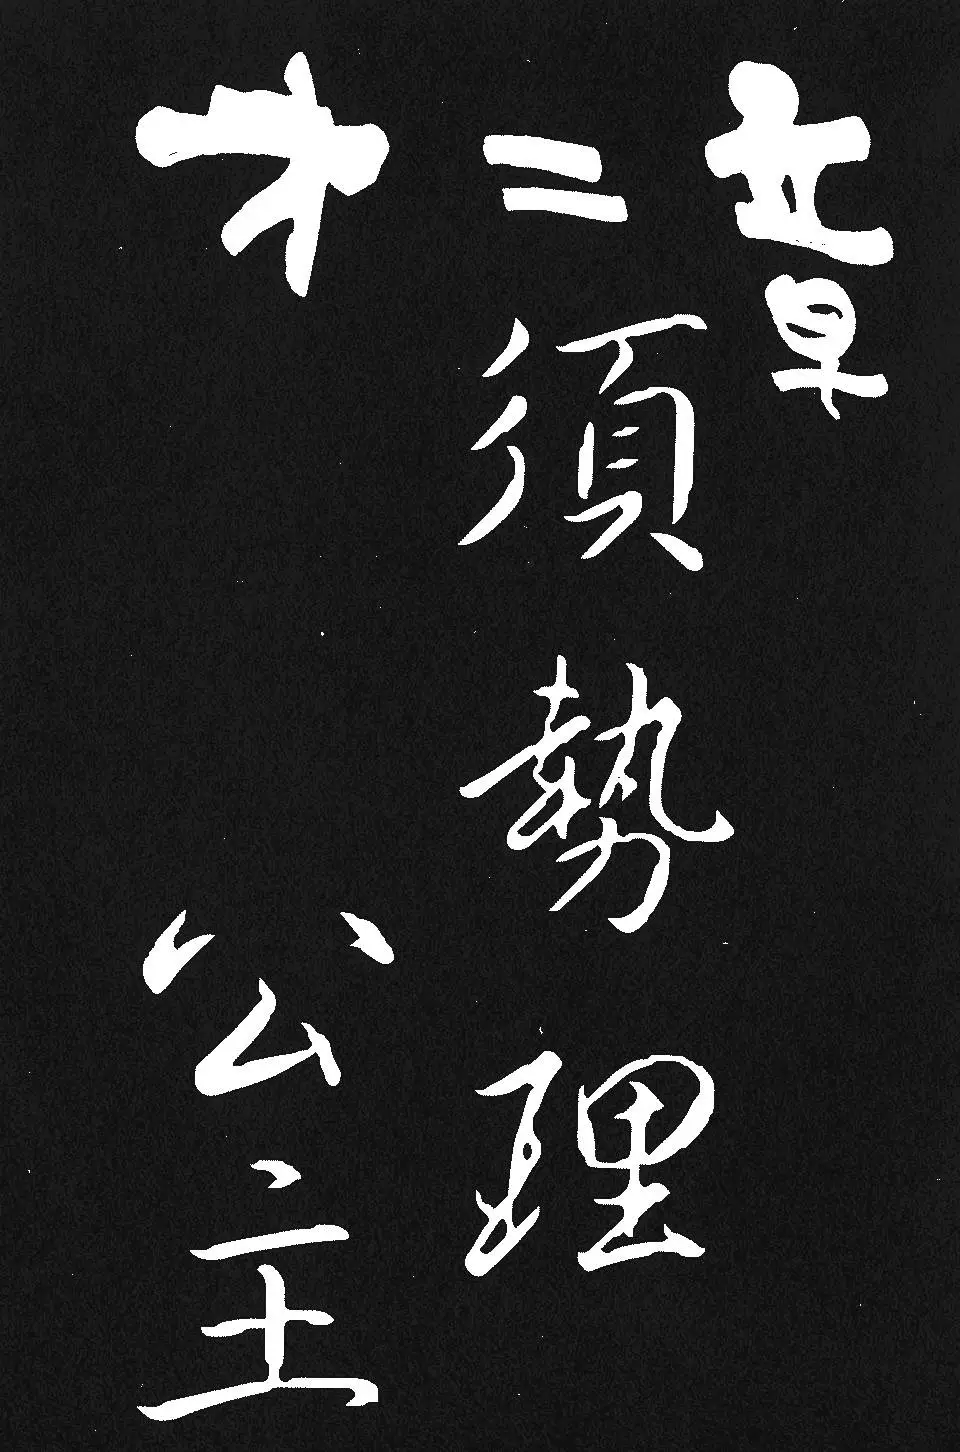 第二章
須勢理
公主